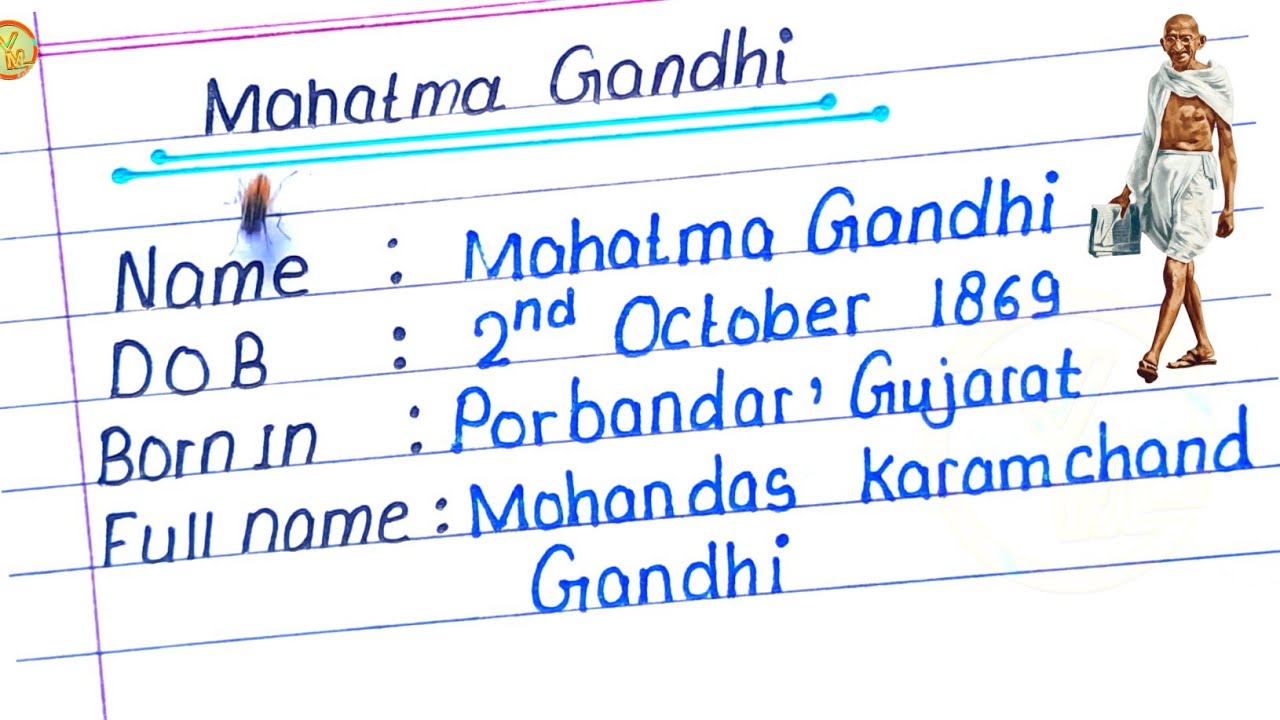 VM
Mahatma Gandhi
Name : Mahatma Gandhi
DOB : 2nd October 1869
Born in : Porbandar, Gujarat
Full name : Mohandas Karamchand
Gandhi